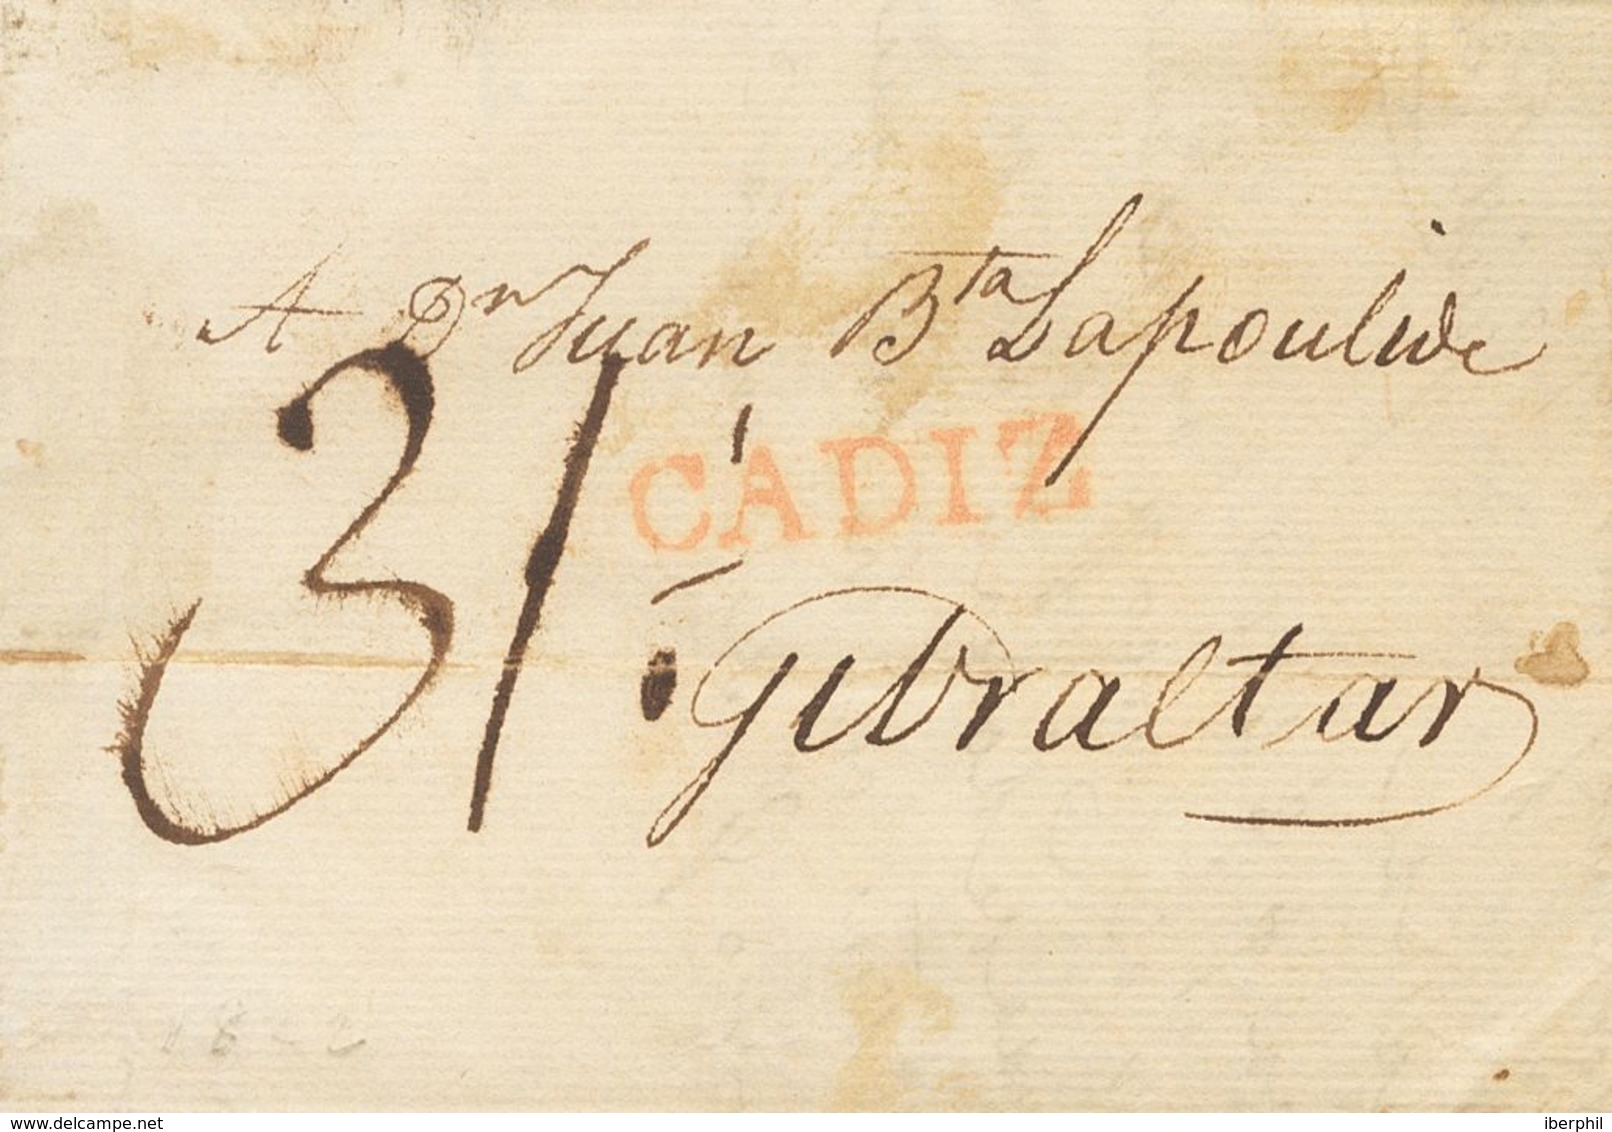 A Dn Juan Bta Lapoulide
3/
CADIZ
Gibraltar
www.delcampe.net
iberphil